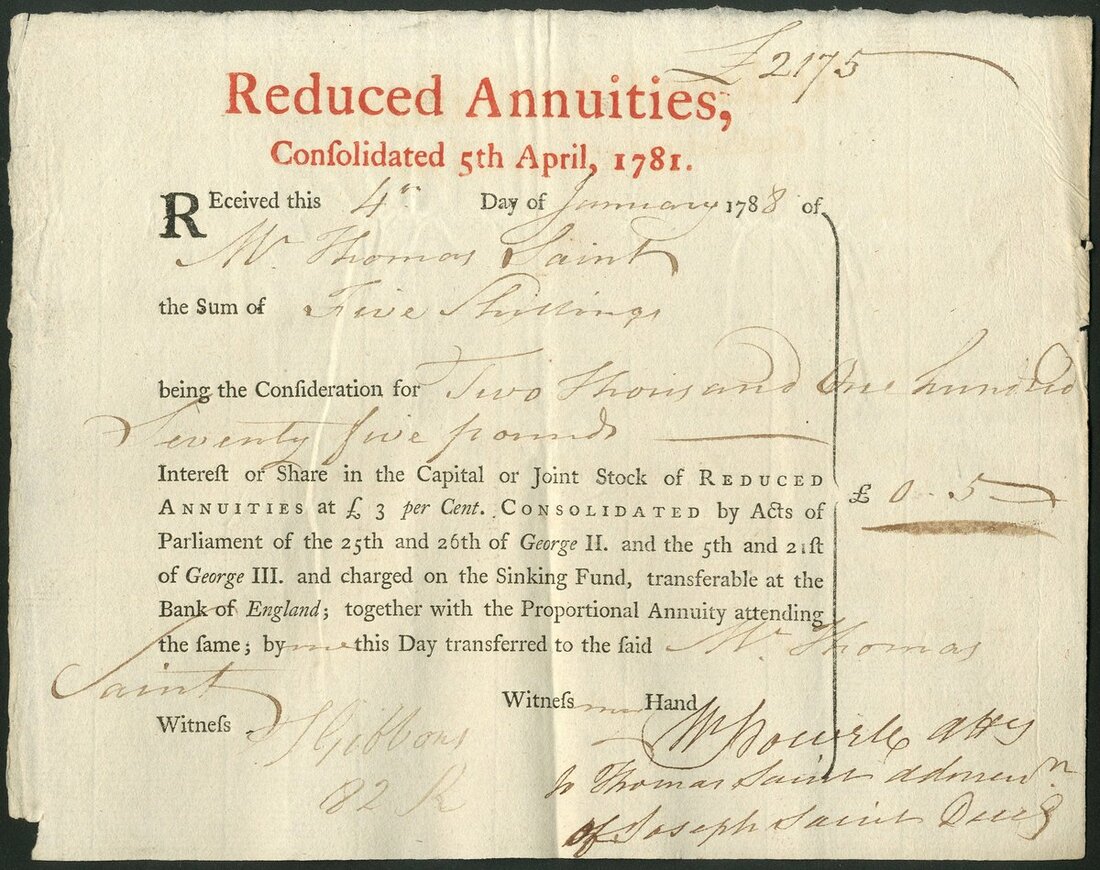 £2175
Reduced Annuities,
Conſolidated 5th April, 1781.
REceived this 4th Day of January 1788 of
Mr Thomas Saint
the Sum of Five Shillings
being the Conſideration for Two Thousand One hundred
Seventy five pounds
Intereſt or Share in the Capital or Joint Stock of REDUCED
ANNUITIES at £ 3 per Cent. CONSOLIDATED by Acts of
£ 0 - 5
Parliament of the 25th and 26th of George II. and the 5th and 21ſt
of George III. and charged on the Sinking Fund, transferable at the
Bank of England; together with the Proportional Annuity attending
the ſame; by me this Day transferred to the ſaid Mr Thomas
Saint
Witneſs my Hand
Witneſs Gibbons
82 K
Wm atty
to Thomas Saint
of Joseph Saint Decd